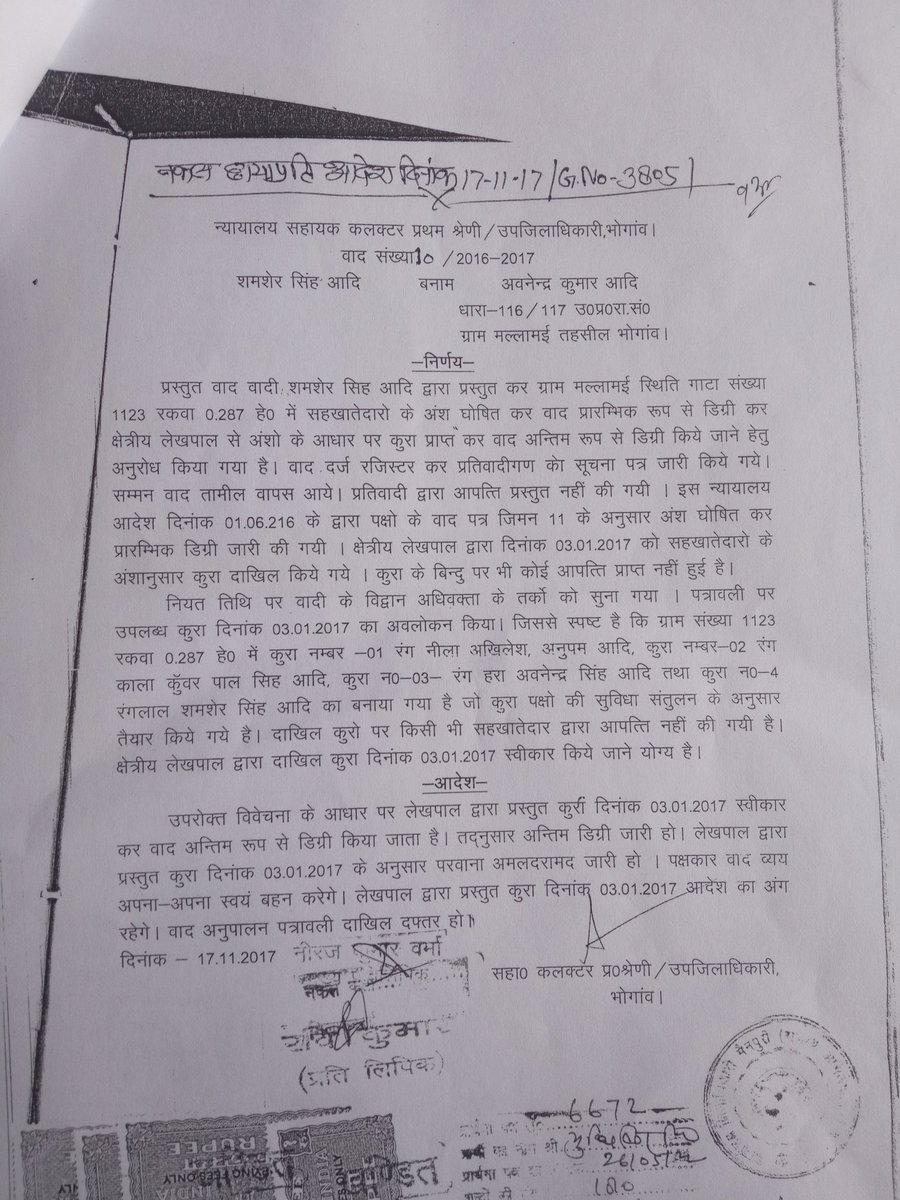 नकल छायाप्रति आदेश दिनांक 17-11-17/G.No-3805/
न्यायालय सहायक कलक्टर प्रथम श्रेणी/उपजिलाधिकारी,भोगांव।
वाद संख्या10 /2016–2017
शमशेर सिंह आदि बनाम अवनेन्द्र कुमार आदि
धारा–116/117 उ0प्र0रा.सं0
ग्राम मल्लामई तहसील भोगांव।
–निर्णय–
प्रस्तुत वाद वादी शमशेर सिह आदि द्वारा प्रस्तुत कर ग्राम मल्लामई स्थिति गाटा संख्या
1123 रकवा 0.287 हे0 में सहखातेदारो के अंश घोषित कर वाद प्रारम्भिक रूप से डिग्री कर
क्षेत्रीय लेखपाल से अंशो के आधार पर कुरा प्राप्त कर वाद अन्तिम रूप से डिग्री किये जाने हेतु
अनुरोध किया गया है। वाद दर्ज रजिस्टर कर प्रतिवादीगण काे सूचना पत्र जारी किये गये।
सम्मन वाद तामील वापस आये। प्रतिवादी द्वारा आपत्ति प्रस्तुत नहीं की गयी । इस न्यायालय
आदेश दिनांक 01.06.216 के द्वारा पक्षो के वाद पत्र जिमन 11 के अनुसार अंश घोषित कर
प्रारम्भिक डिग्री जारी की गयी । क्षेत्रीय लेखपाल द्वारा दिनांक 03.01.2017 को सहखातेदारो के
अंशानुसार कुरा दाखिल किये गये । कुरा के बिन्दु पर भी कोई आपत्ति प्राप्त नहीं हुई है।
नियत तिथि पर वादी के विद्वान अधिवक्ता के तर्को को सुना गया । पत्रावली पर
उपलब्ध कुरा दिनांक 03.01.2017 का अवलोकन किया। जिससे स्पष्ट है कि ग्राम संख्या 1123
रकवा 0.287 हे0 में कुरा नम्बर –01 रंग नीला अखिलेश, अनुपम आदि, कुरा नम्बर–02 रंग
काला कुॅवर पाल सिह आदि, कुरा न0–03– रंग हरा अवनेन्द्र सिंह आदि तथा कुरा न0–4
रंगलाल शमशेर सिंह आदि का बनाया गया है जो कुरा पक्षो की सुविधा संतुलन के अनुसार
तैयार किये गये है। दाखिल कुरो पर किसी भी सहखातेदार द्वारा आपत्ति नहीं की गयी है।
क्षेत्रीय लेखपाल द्वारा दाखिल कुरा दिनांक 03.01.2017 स्वीकार किये जाने योग्य है।
–आदेश–
उपरोक्त विवेचना के आधार पर लेखपाल द्वारा प्रस्तुत कुर्रा दिनांक 03.01.2017 स्वीकार
कर वाद अन्तिम रूप से डिग्री किया जाता है। तद्नुसार अन्तिम डिग्री जारी हो। लेखपाल द्वारा
प्रस्तुत कुरा दिनांक 03.01.2017 के अनुसार परवाना अमलदरामद जारी हो । पक्षकार वाद व्यय
अपना–अपना स्वयं बहन करेगे। लेखपाल द्वारा प्रस्तुत कुरा दिनांक 03.01.2017 आदेश का अंग
रहेगे। वाद अनुपालन पत्रावली दाखिल दफ्तर हो।
दिनांक – 17.11.2017 नीरज कुमार वर्मा
सहा0 कलक्टर प्र0श्रेणी/उपजिलाधिकारी,
भोगांव।
कुमार
(प्रति लिपिक)
6672
RUPEE
INDIA
खण्डित